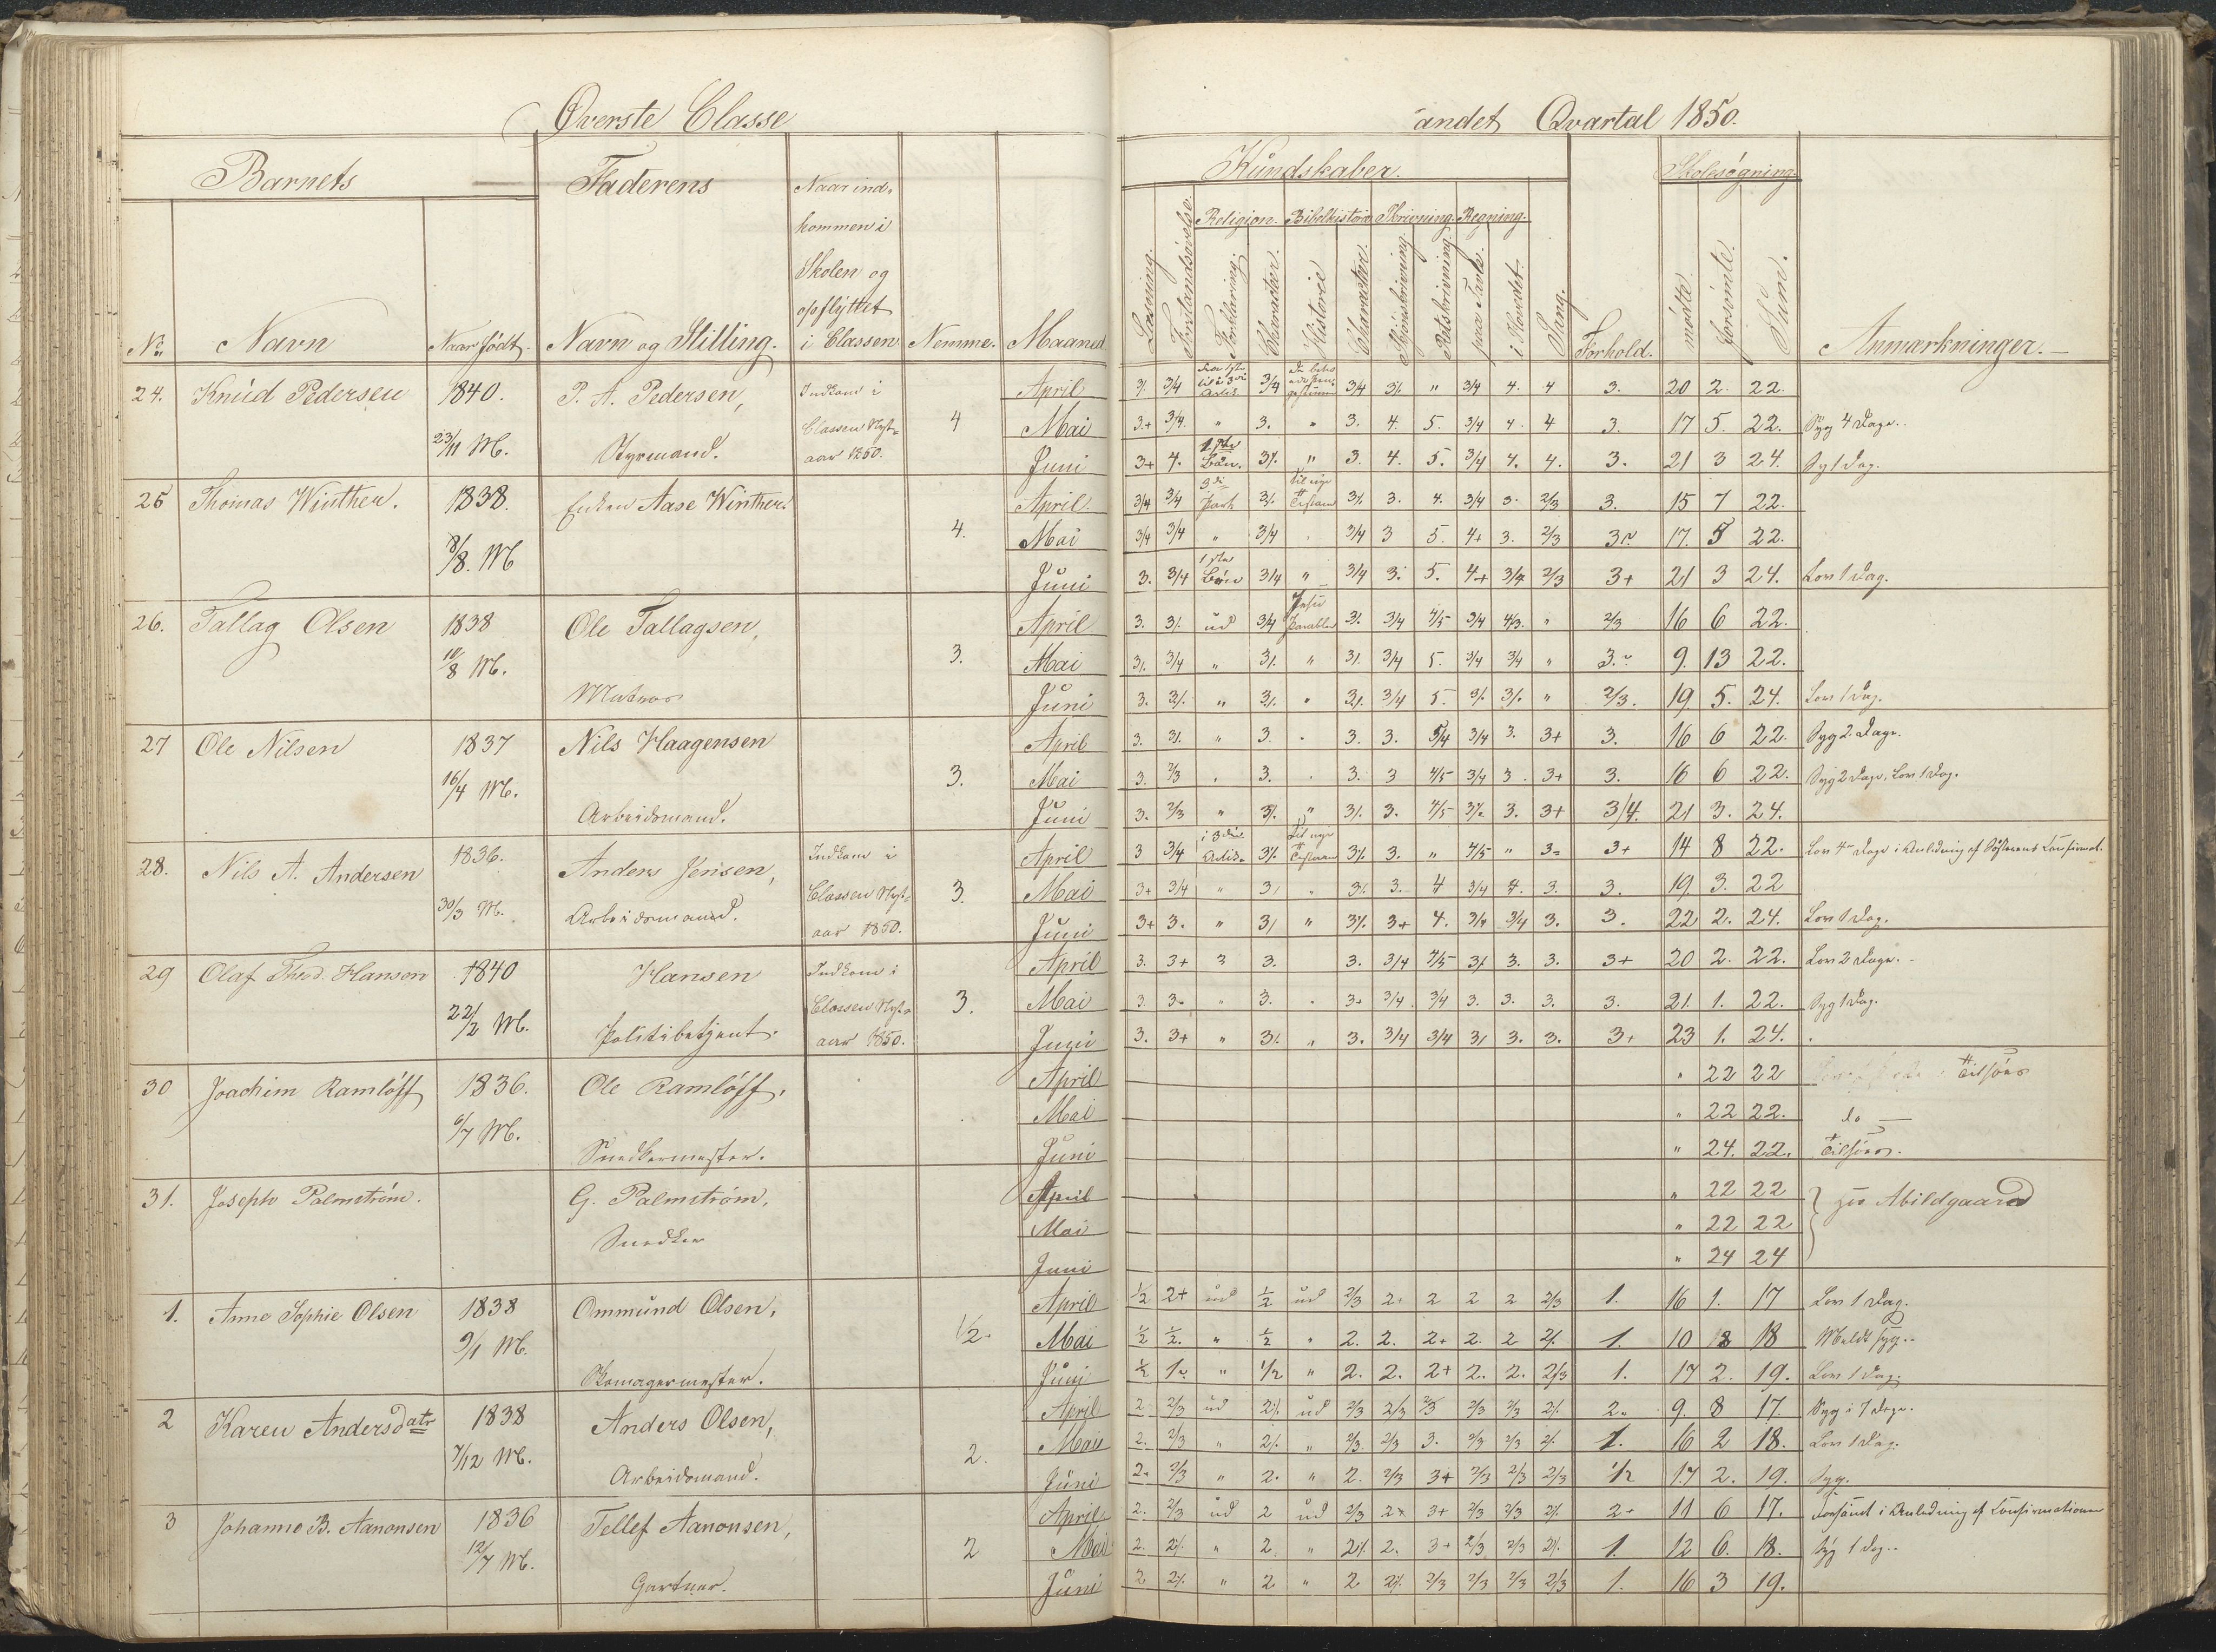 Øverste Classe
andet Qvartal 1850.
Barnets
Faderens
Naar ind-
kommen i
Skolen og
opflyttet
i Classen
No
Navn
Naar født.
Navn og Stilling.
Nemme.
Maaned
Kundskaber.
Skolesøgning.
Religion. Bibelhistorie Skrivning. Regning.
Læsning.
Forstandsøvelse.
Forklaring.
Character.
Historie
Character.
Skjønskrivning.
Retskrivning.
paa Tavle.
i Hovedet.
Sang.
Forhold.
mødte.
forsømte.
Sum.
Anmærkninger.
24. Knud Pedersen 1840. P. A. Pedersen, Indkom i April 3/4 3/4 4. 4 3. 20 2. 22.
23/11 M. Styrmand. Classen Nyt- 4 Mai 3+ 3/4 " 3. " 3. 4. 5. 3/4 4. 4 3. 17 5. 22. Syg 4 Dage.
aar 1850. Juni 3+ 4. 1ste Bøn. 3/. " 3. 4. 5. 3/4 4. 4. 3. 21 3 24. Syg 1 Dag.
25 Thomas Winther. 1838. Enken Aase Winther. April 3/4 3/4 3die Part 3/. 3/. 3. 4. 3/4 3. 2/3 3. 15 7 22.
8/8. M 4. Mai 3/4 3/4 " 3/4 " 3/4 3 5. 4+ 3. 2/3 3 17. 5 22.
Juni 3. 3/4 1ste Bøn 3/4 " 3/4 3. 5. 4+ 3/4 2/3 3+ 21 3 24. Lov 1 Dag.
26. Tallag Olsen 1838 Ole Tallagsen, April 3. 3/. ud 3/4 Jesu Parabler 3/. 3/4 4/5 3/4 4/3. " 2/3 16 6 22.
10/8 M. 3. Mai 3/. 3/4 " 3/. " 3/. 3/4 5. 3/4 3/4 " 3. 9. 13 22.
Matros Juni 3. 3/. " 3/. " 3/. 3/4 5. 3/. 3/. " 2/3. 19 5. 24. Lov 1 Dag.
27 Ole Nilsen 1837 Nils Haagensen April 3. 3/. " 3. " 3. 3. 5/4 3/4 3. 3+ 3. 16 6 22. Syg 2 Dage.
16/4 M. 3. Mai 3. 2/3 " 3. " 3. 3 4/5 3/4 3. 3+ 3. 16 6 22. Syg 2 Dage, Lov 1 Dag.
Arbeidsmand. Juni 3. 2/3 " 3/. " 3/. 3. 4/5 3/. 3. 3+ 3/4. 21 3. 24.
28. Nils A. Andersen 1836. Anders Jensen, Indkom i April 3 3/4 i 3die Artik. 3/. 3/. 3. " 4/5 " 3 3+ 14 8 22. Lov 4 Dage i Anledning af Søsterens Confirmat.
30/3 M. Arbeidsmand. Classen Nyt- 3. Mai 3+ 3/4 " 3/ " 3/. 3. 4 3/4 4. 3. 3. 19 3. 22
aar 1850. Juni 3+ 3. " 3/ " 3/. 3+ 4. 3/4 3/4 3. 3. 22 2. 24. Lov 1 Dag.
29 Olaf Theod. Hansen 1840 Hansen Indkom i April 3. 3+ 3 3. 3. 3/4 4/5 3/ 3. 3. 3+ 20 2. 22. Lov 2 Dage.
22/2 M. Politibetjent. Classen Nyt- 3. Mai 3. 3 " 3. " 3 3/4 3/4 3. 3. 3. 3. 21. 1. 22. Syg 1 Dag.
aar 1850. Juni 3. 3+ " 3/. " 3. 3/4 3/4 3/ 3. 3. 3+ 23 1. 24.
30 Joachim Ramløff 1836. Ole Ramløff. April " 22 22 Tilsøes
6/7 M. Mai " 22 22. do
Snedkermester. Juni " 24. 22. Tilsøes.
31. Joseph Palmstrøm. G. Palmstrøm, April " 22 22
Snedker Mai " 22 22 Abildgaard
Juni " 24 24
1. Anne Sophie Olsen 1838 Ommund Olsen, April 1/2 2+ ud 1/2 ud 2/3 2 2 2 2 2/3 1. 16 1. 17 Lov 1 Dag.
9/1 M. 1/2 Mai 1/2 1/2 " 1/2 " 2. 2. 2+ 2. 2 2/. 1. 10 8 18 Meldt syg.
Skomagermester. Juni 1/2 1 " 1/2 " 2. 2. 2+ 2. 2. 2/3 1. 17 2. 19. Lov 1 Dag.
2 Karen Andersdatr 1838 Anders Olsen, April 2 2/3 ud 2/. ud 2/3 2/3 2/3 2/3 2/3 2/. 2 9. 8 17. Syg i 7 Dage.
7/12 M. 2. Mai 2. 2/3 " 2/. " 2/3 2/3 3. 2/3 2/3 2/. 1. 16 2 18. Lov 1 Dag.
Arbeidsmand. Juni 2 2/3 " 2. " 2. 2/3 3+ 2/3 2/3 2/3 1/2 17 2. 19. Syg.
3 Johanne B. Aanonsen 1836 Tellef Aanonsen, April 2. 2/3 ud 2 ud 2/3 2 3+ 2/3 2/3 2/. 2+ 11 6 17. Forsømt i Anledning af Confirmationen
12/7 M. 2 Mai 2. 2/. " 2 " 2/. 2. 3+ 2/3 2/3 2/. 1. 12 6. 18. Syg 1 Dag.
Gartner. Juni 2 2/. " 2 " 2 2/. 2/3 2/3 2/3 2/3 1. 16 3 19.